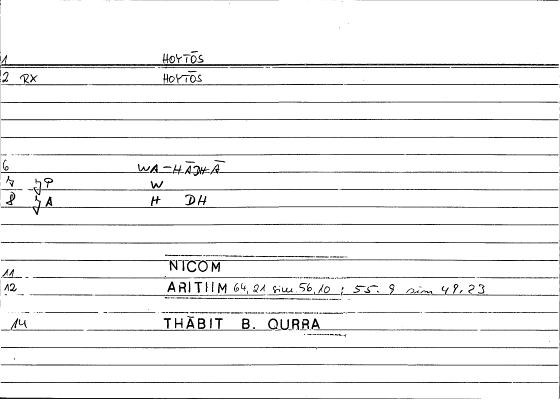 1 HOYTŌS
2 RX HOYTŌS
6 WA-HĀDHĀ
7 JP W
8 JA H DH
11 NICOM
12 ARITIIM 64,21 sim 56,10 ; 55.9 sim 49,23
14 THĀBIT B. QURRA